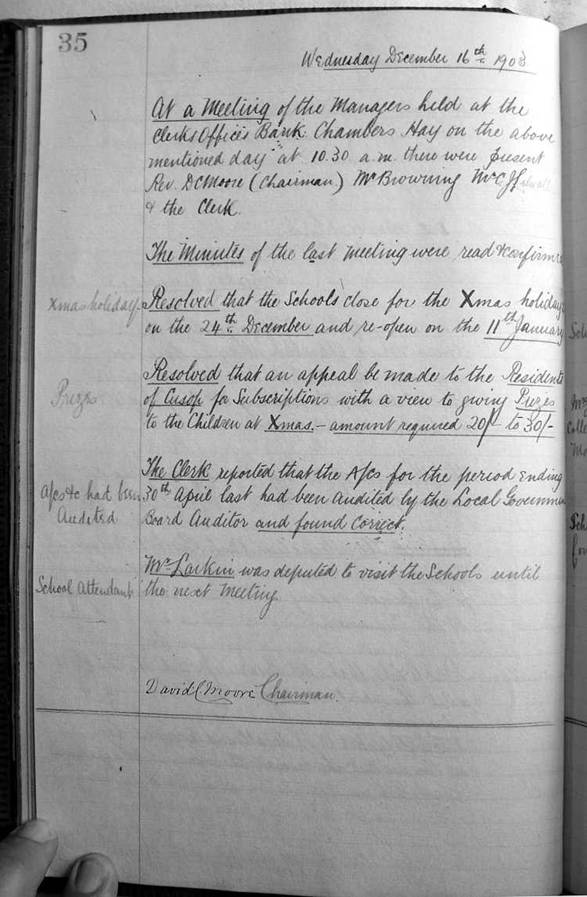 35
Wednesday December 16th 1903
At a Meeting of the Managers held at the
Clerks Offices Bank Chambers Hay on the above
mentioned day at 10.30 a.m. there were present
Rev. D C Moore (Chairman) Mr Browning Mr C J
& the Clerk.
The Minutes of the last Meeting were read & confirmed
Xmas holidays
Resolved that the Schools close for the Xmas holidays
on the 24th December and re-open on the 11th January
Prizes
Resolved that an appeal be made to the Residents
of Cusop for Subscriptions with a view to giving Prizes
to the Children at Xmas. - amount required 20/- to 30/-
A/cs &c had been
Audited
The Clerk reported that the A/cs for the period ending
30th April last had been audited by the Local Governm
Board Auditor and found correct.
School Attendant
Mr Larkin was deputed to visit the Schools until
the next Meeting
David C Moore Chairman.